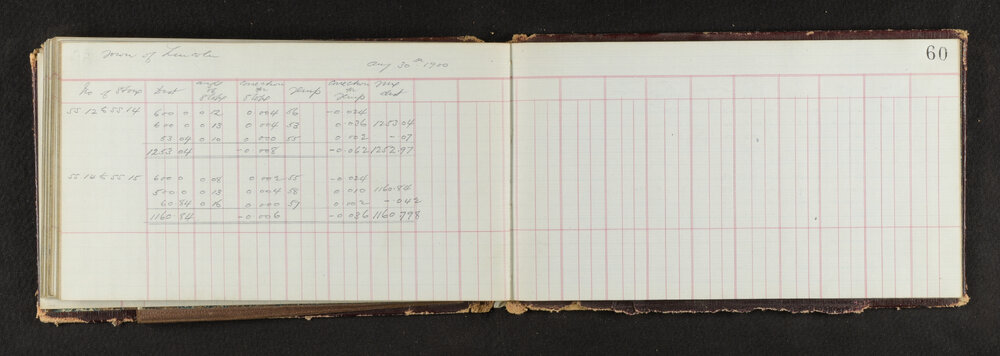 Town of Lincoln
Aug 30th 1900
60
No of Stops Dist angle of Slope Correction for Slope Temp Correction for Temp True dist
SS 12 to SS 14 600 0 0 12 0 004 56 -0.024
600 0 0 13 0 004 53 0 036 1253.04
53 04 0 10 0 000 55 0 002 -.07
1253 04 -0 008 -0.062 1252.97
SS 14 to SS 15 600 0 0 08 0 002 55 -0.024
500 0 0 13 0 004 58 0 010 1160.84
60.84 0 16 0 000 59 0 002 -.042
1160 84 -0 006 -0.036 1160.798